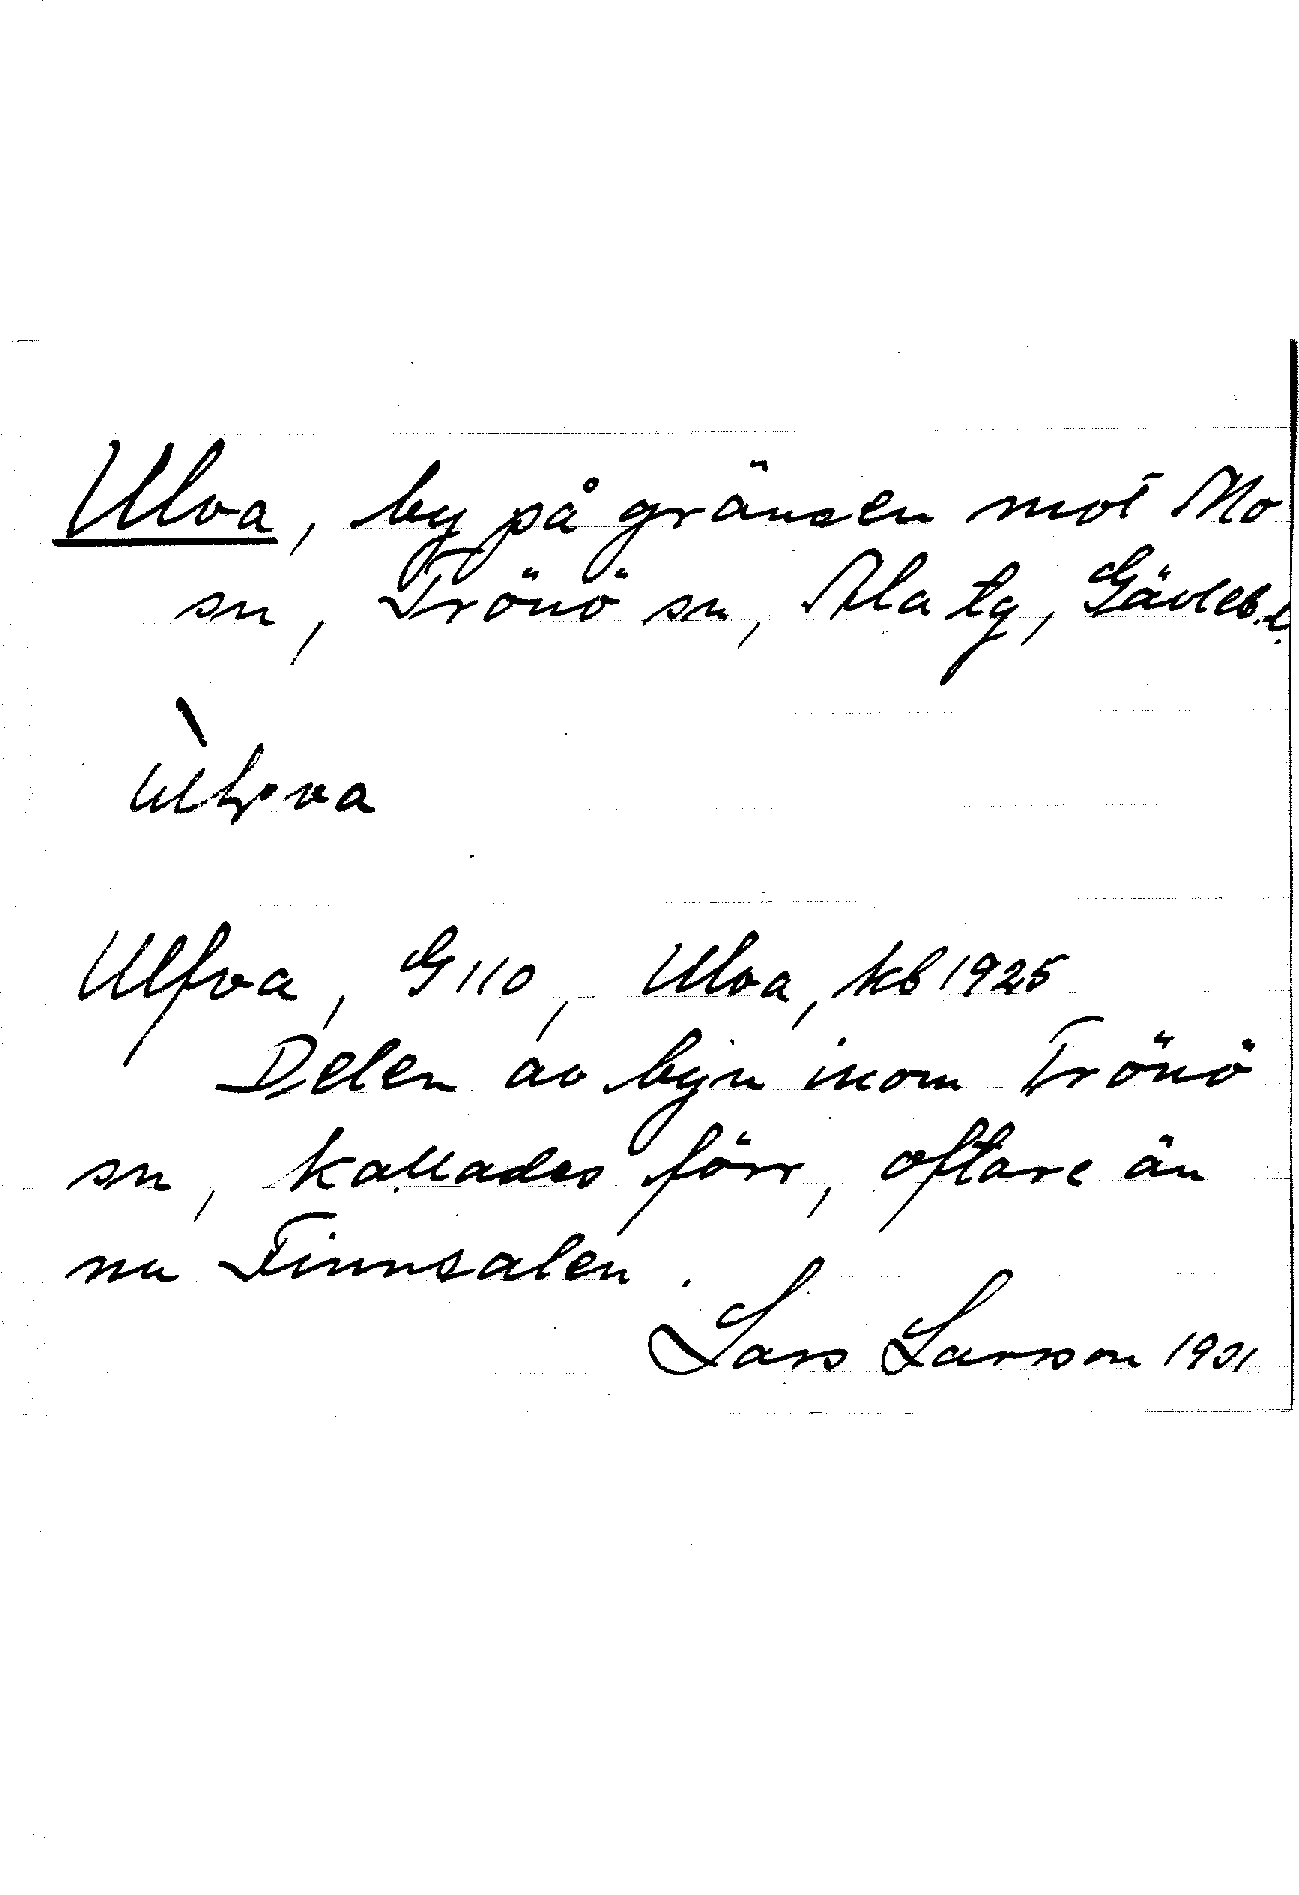 Ulva, by på gränsen mot Mo
sn, Trönö sn, Ala tg, Gävleb.l.
Ulfva, G110, Ulva, kb 1925
Delen av byn inom Trönö
sn, kallades förr, oftare än
nu Finnsalen.
Lars Larsson 1931